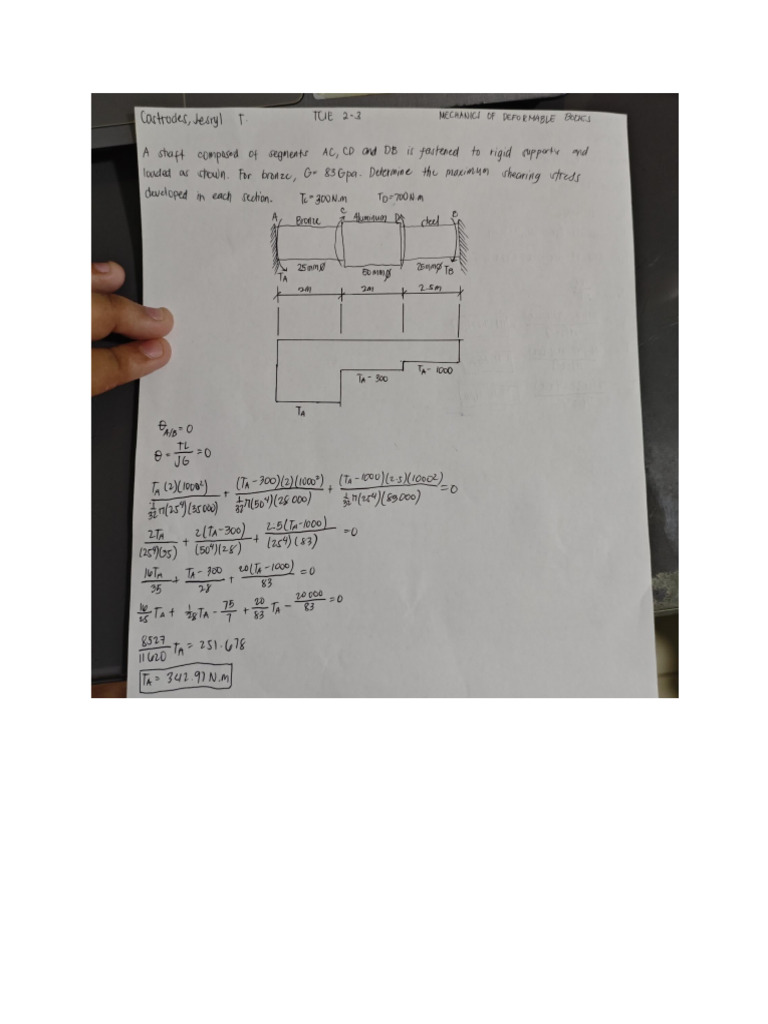 Castrodes, Jesryl T. TCIE 2-3 MECHANICS OF DEFORMABLE BODIES
A shaft composed of segments AC, CD and DB is fastened to rigid supports and
loaded as shown. For bronze, G= 83Gpa. Determine the maximum shearing stress
developed in each section. Tc=300N.m TD=700N.m
A Bronze C Aluminum D steel B
TA 25mmø 50mmø 25mmø TB
2m 2m 2.5m
TA TA-300 TA-1000
θA/B=0
θ = TL/JG = 0
TA(2)(1000²)/(1/32 π(25⁴)(35000)) + (TA-300)(2)(1000²)/(1/32 π(50⁴)(28000)) + (TA-1000)(2.5)(1000²)/(1/32 π(25⁴)(83000)) = 0
2TA/(25⁴)(35) + 2(TA-300)/(50⁴)(28) + 2.5(TA-1000)/(25⁴)(83) = 0
16TA/35 + TA-300/28 + 20(TA-1000)/83 = 0
16/35 TA + 1/28 TA - 75/7 + 20/83 TA - 20000/83 = 0
8527/11620 TA = 251.678
TA = 342.97 N.m